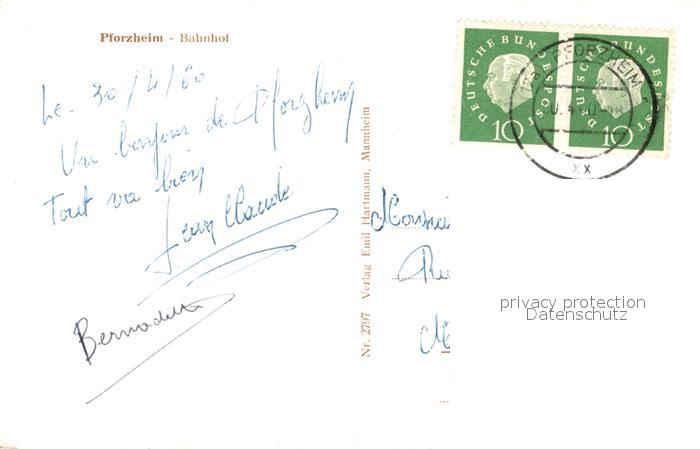 Pforzheim - Bahnhof
Le 30/4/60
Un bonjour de Pforzheim
Tout va bien
Jean Claude
Bernadette
Nr. 2797 Verlag Emil Hartmann, Mannheim
DEUTSCHE BUNDESPOST
10
DEUTSCHE BUNDESPOST
10
PFORZHEIM
xx
privacy protection
Datenschutz